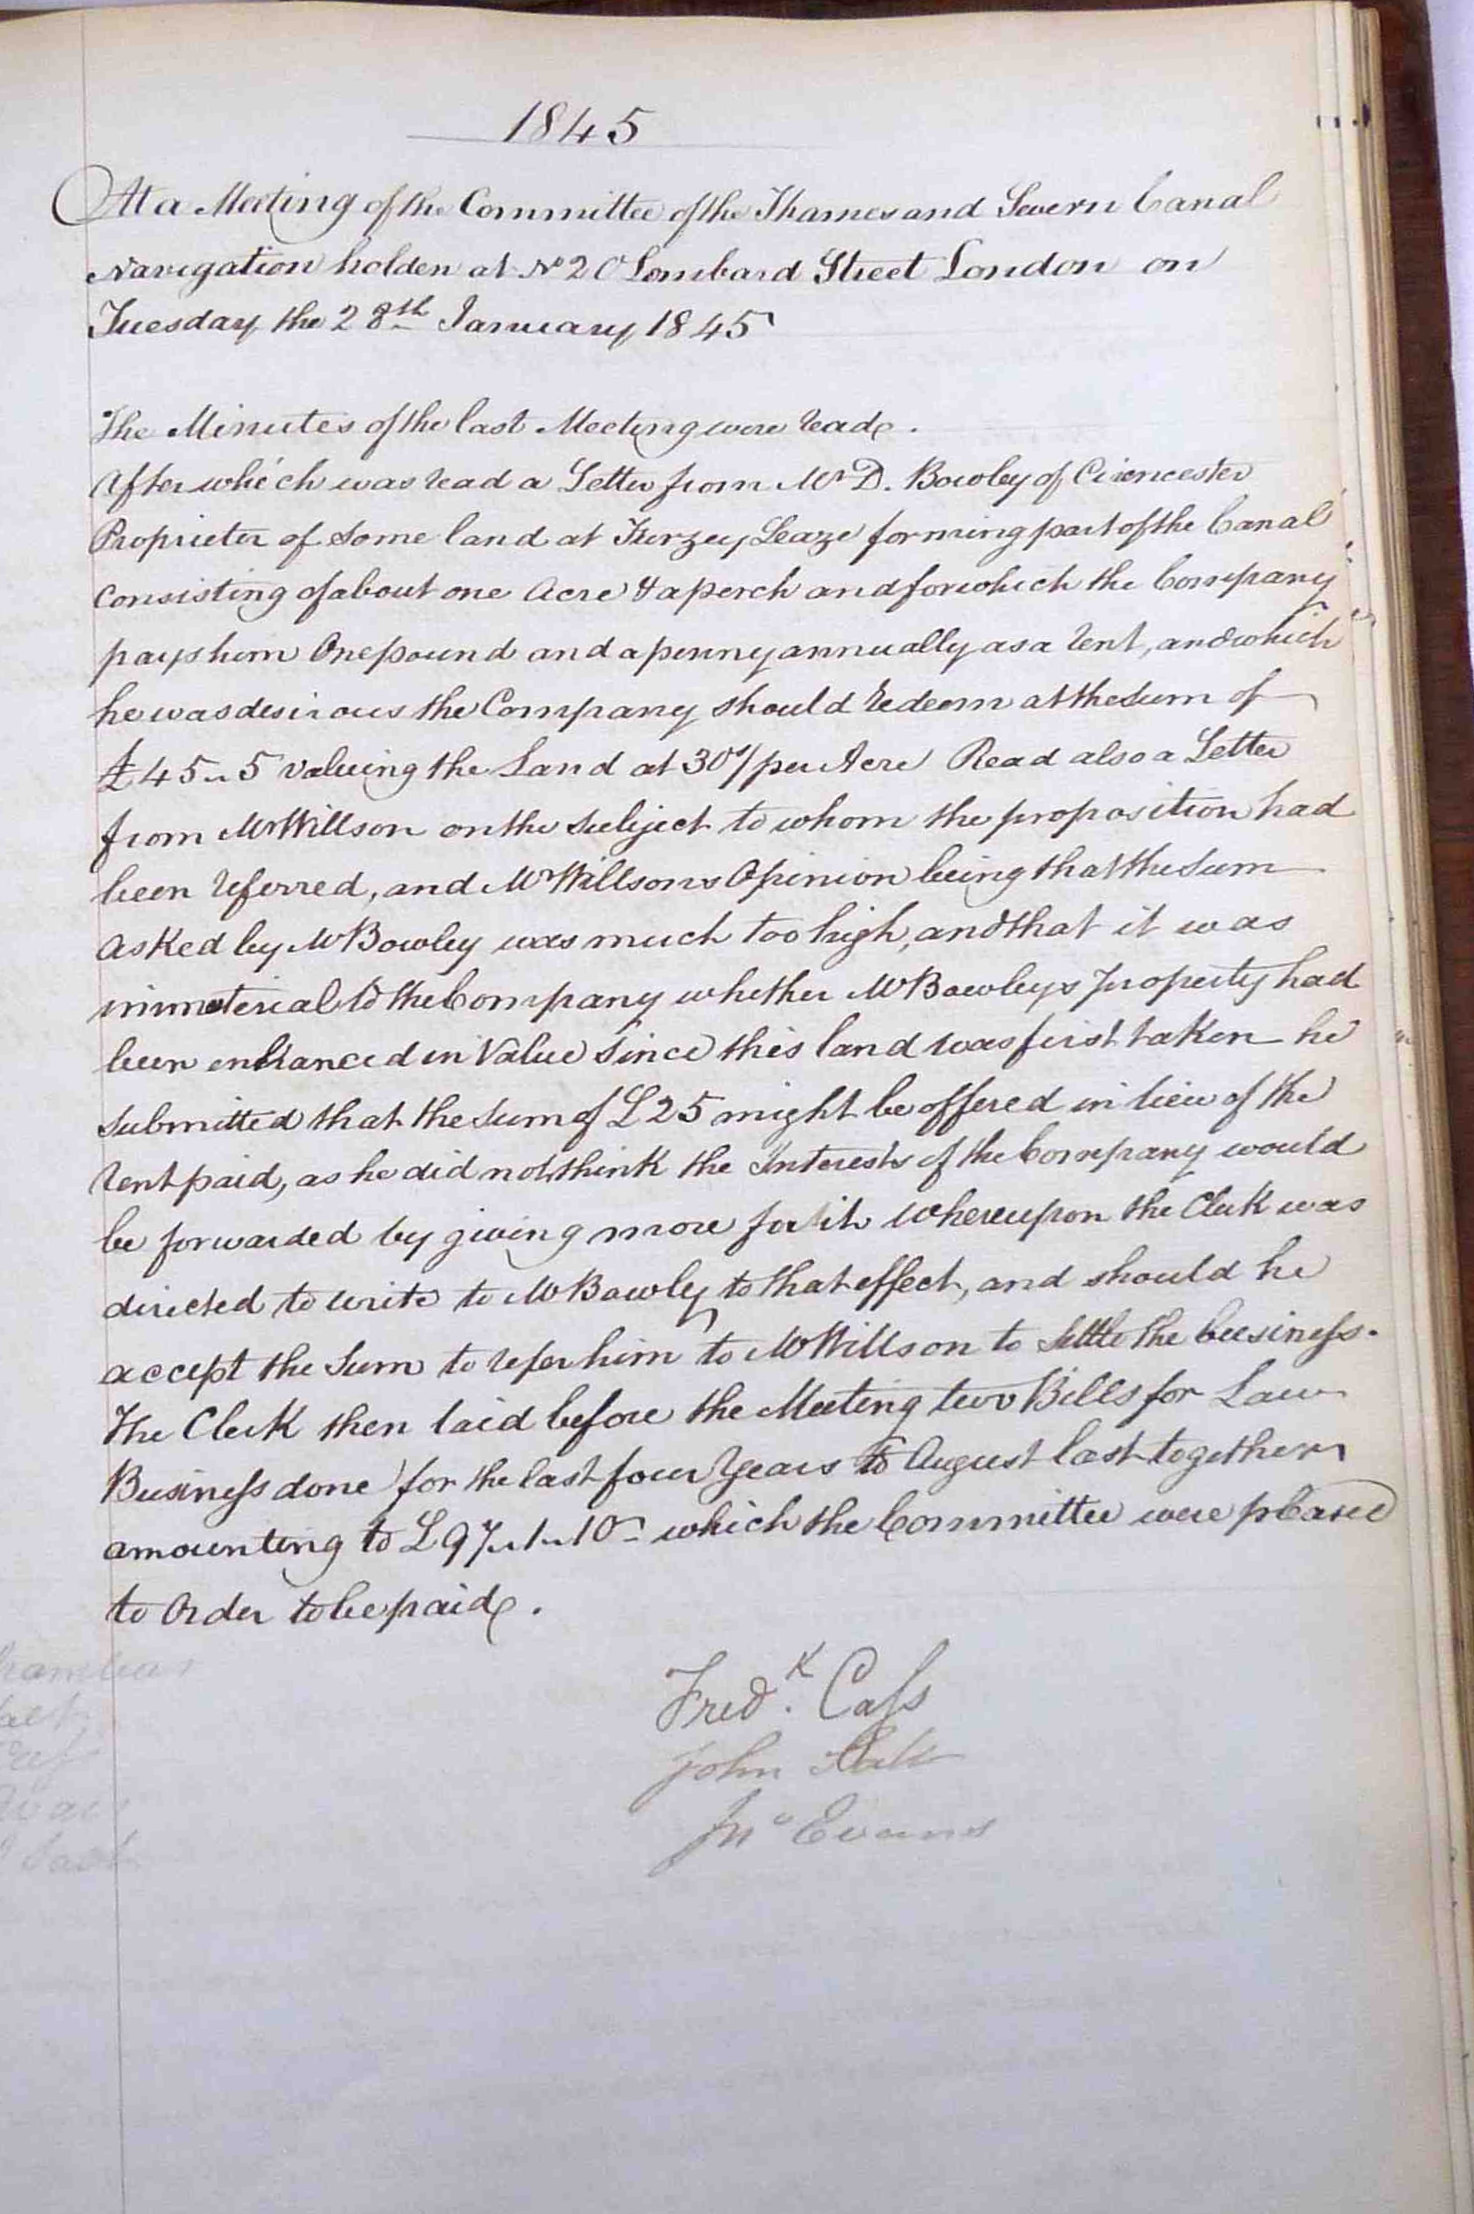 1845
At a Meeting of the Committee of the Thames and Severn Canal
Navigation holden at No 20 Lombard Street London on
Tuesday the 28th January 1845
The Minutes of the last Meeting were read.
After which was read a Letter from Mr D. Bowley of Cirencester
Proprietor of some land at Furzey Leaze forming part of the Canal
consisting of about one Acre & a perch and for which the Company
pays him One pound and a penny annually as a rent, and which
he was desirous the Company should redeem at the Sum of
£45 " 5 valuing the Land at 30s/ per Acre Read also a Letter
from Mr Willson on the subject to whom the proposition had
been referred, and Mr Willsons Opinion being that the Sum
asked by Mr Bowley was much too high, and that it was
immaterial to the Company whether Mr Bowleys property had
been enhanced in Value since this land was first taken he
submitted that the sum of £25 might be offered in lieu of the
rent paid, as he did not think the Interests of the Company would
be forwarded by giving more for it whereupon the Clerk was
directed to write to Mr Bowly to that effect, and should he
accept the Sum to refer him to Mr Willson to settle the business.
The Clerk then laid before the Meeting two Bills for Law
Business done for the last four Years to August last together
amounting to £97 " 1 " 10 - which the Committee were pleased
to Order to be paid.
Fredk. Cass
John
Jno Evans